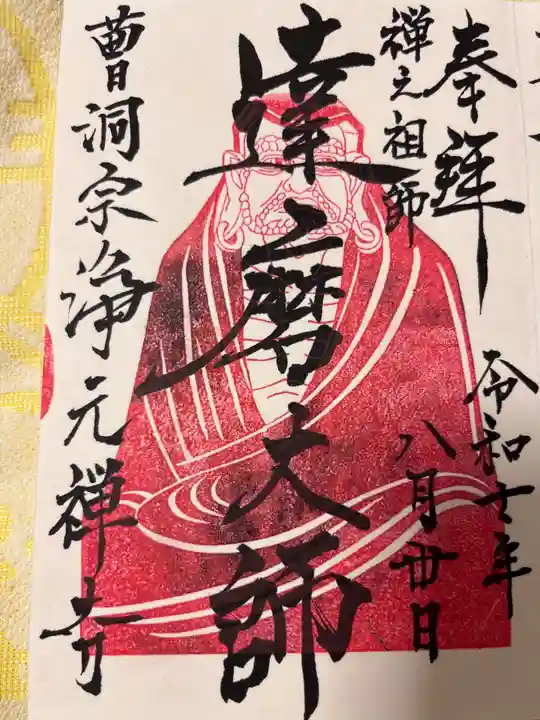 奉拝
禅之祖師
令和七年
八月廿日
達磨大師
曹洞宗浄元禅寺